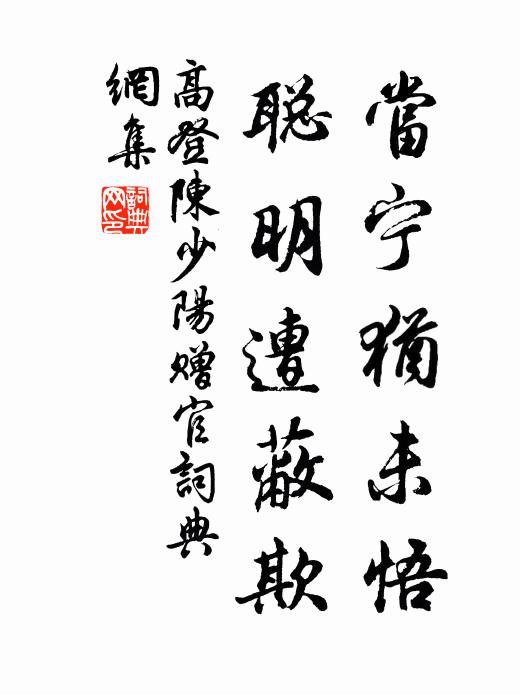 當宁猶未悟
聰明遭蔽欺
高登陳少陽贈官詞典
網集
詞典
网印